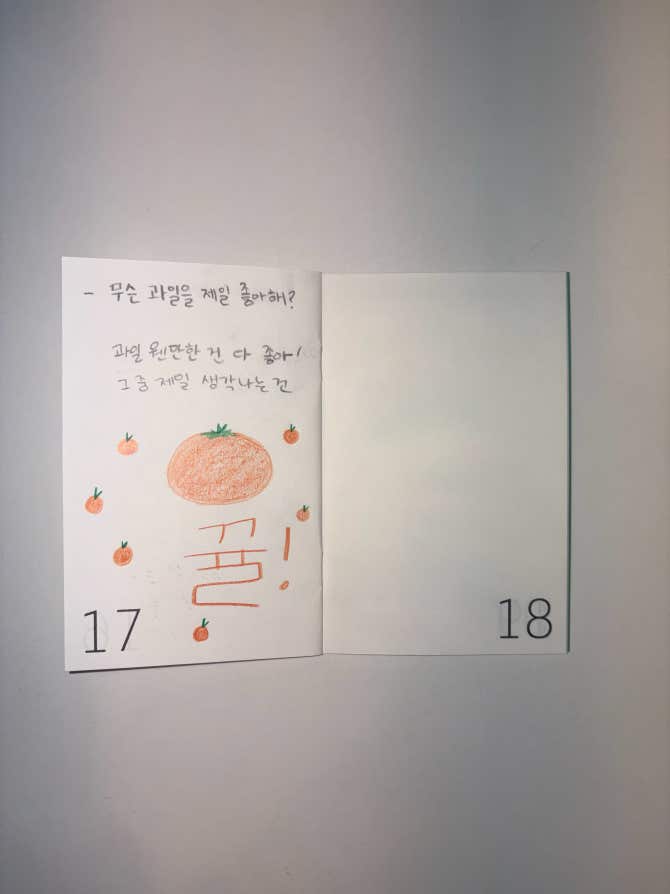 - 무슨 과일을 제일 좋아해?
과일 웬만한 건 다 좋아!
그 중 제일 생각나는 건
귤!
17
18